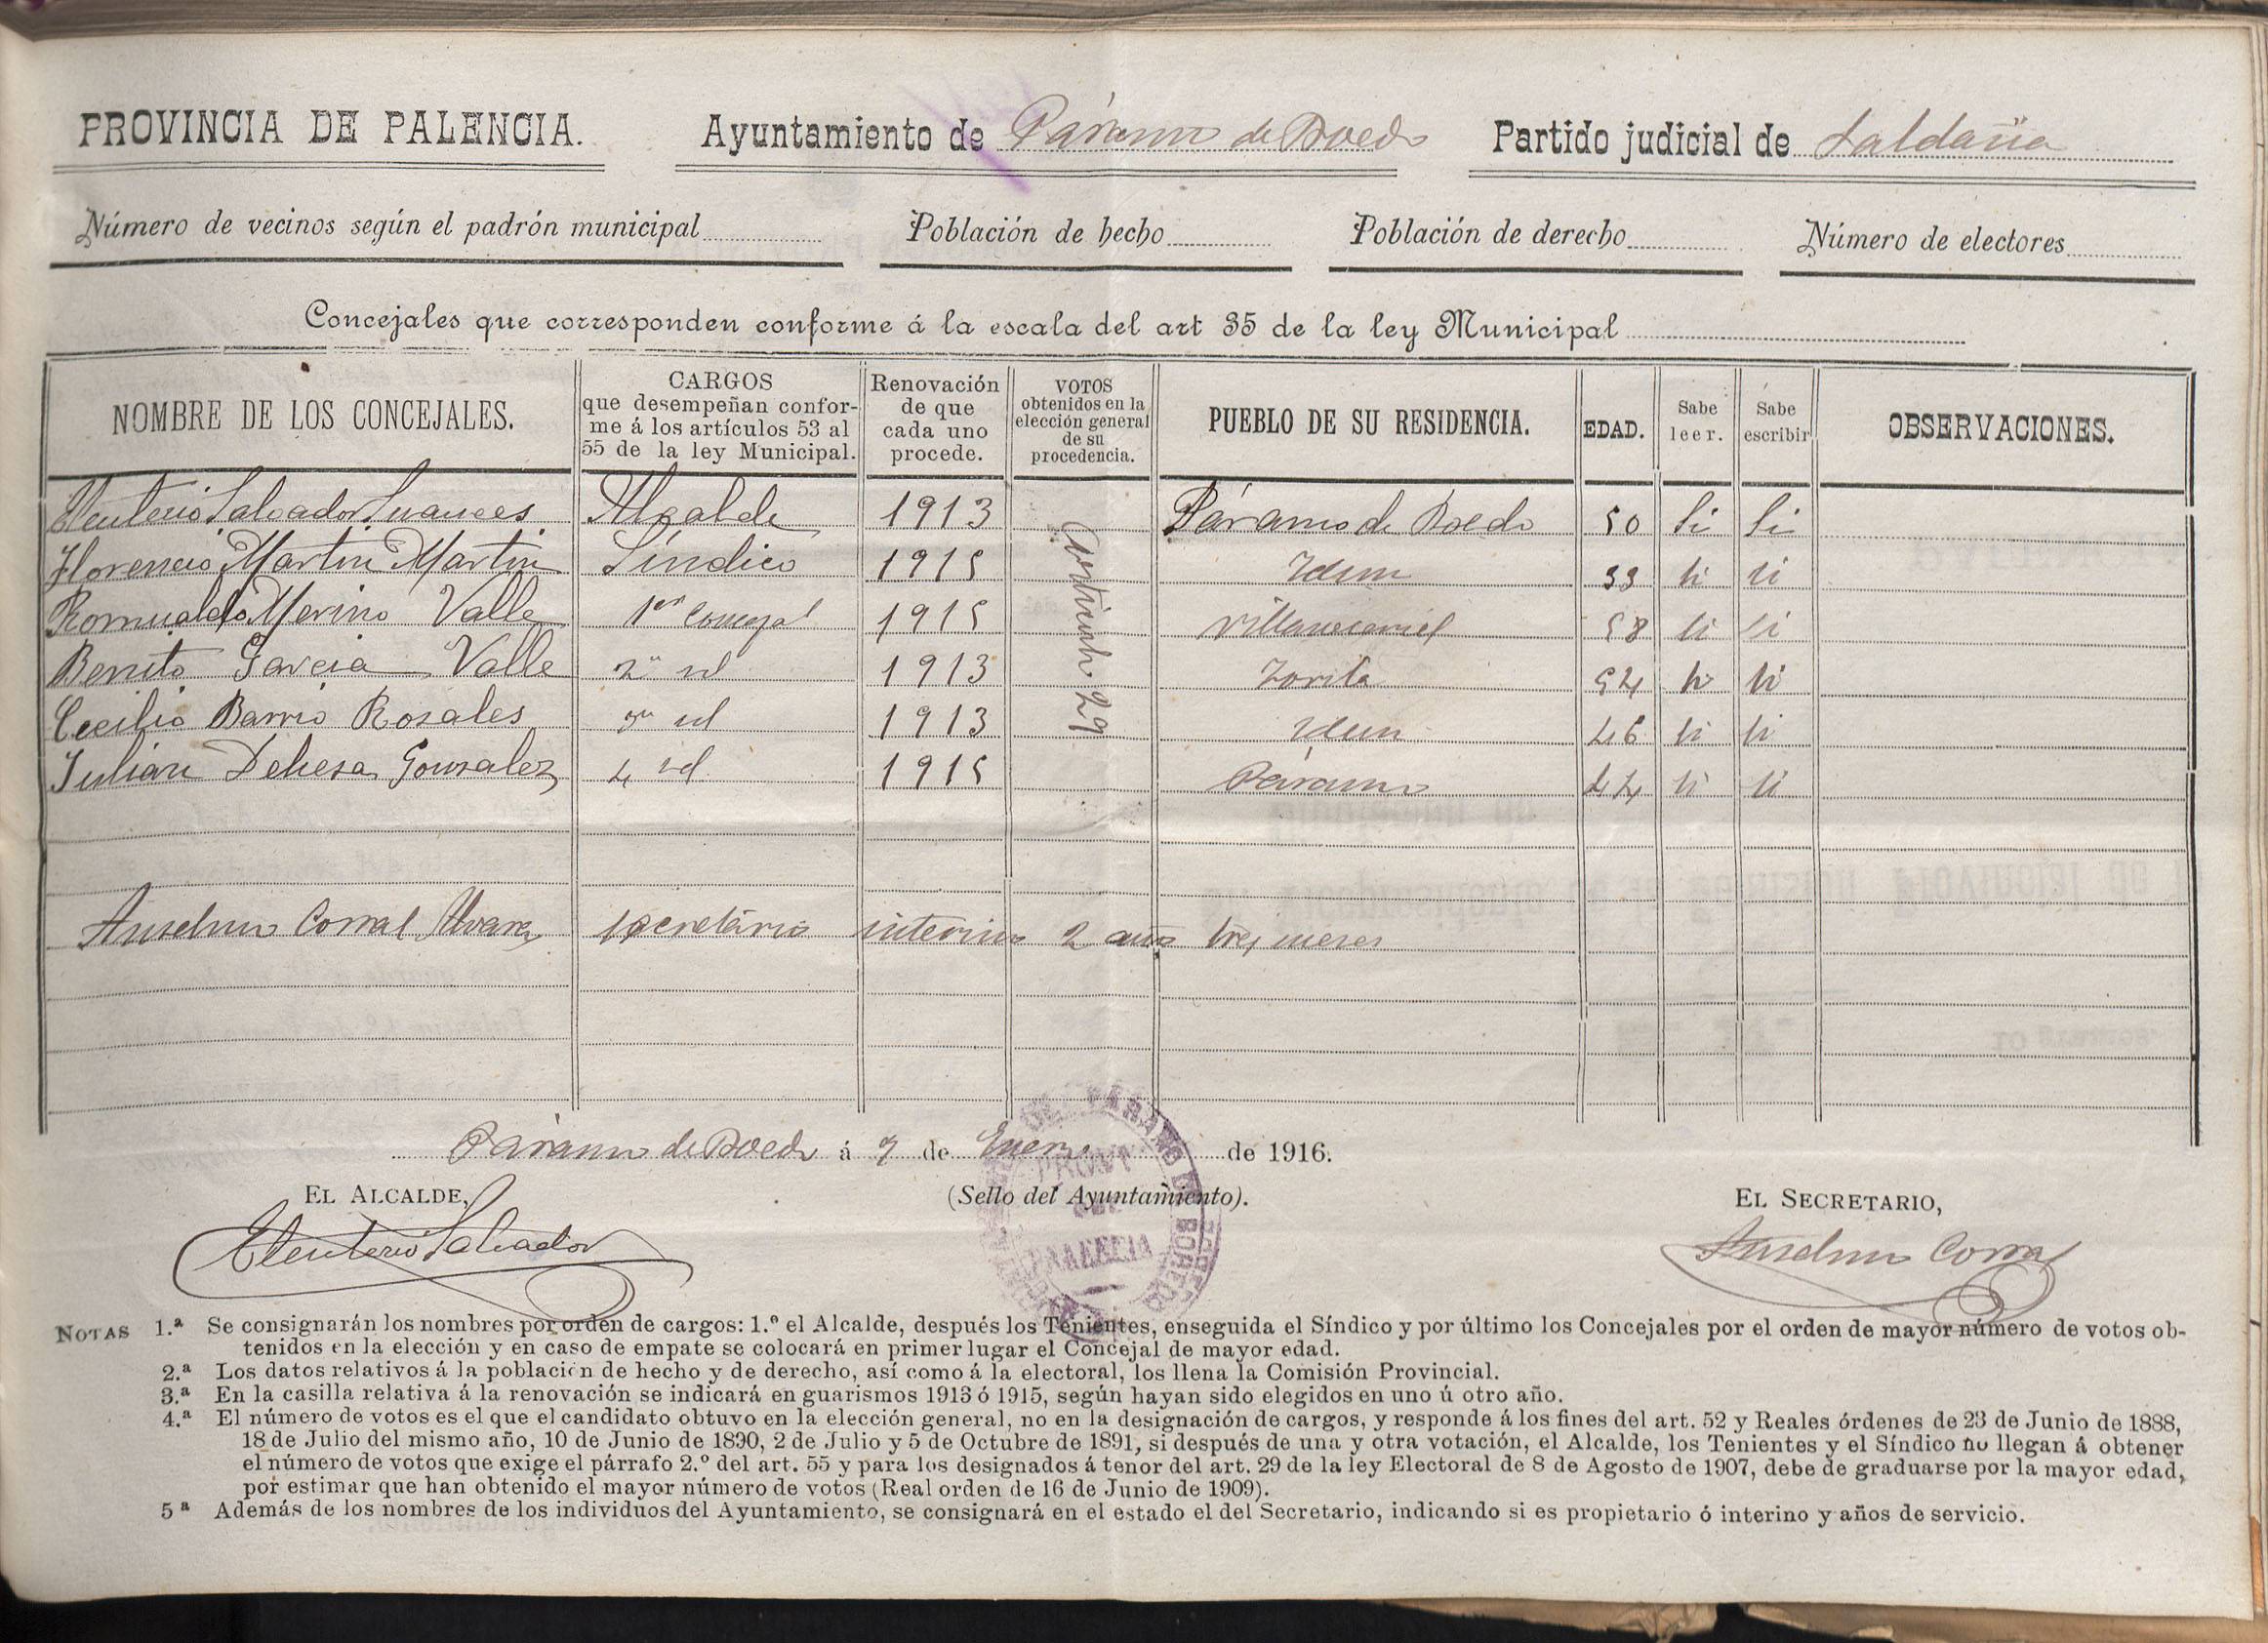 PROVINCIA DE PALENCIA. Ayuntamiento de Páramo de Boedo Partido judicial de Saldaña
Número de vecinos según el padrón municipal Población de hecho Población de derecho Número de electores
Concejales que corresponden conforme á la escala del art 35 de la ley Municipal
NOMBRE DE LOS CONCEJALES. CARGOS que desempeñan conforme á los artículos 53 al 55 de la ley Municipal. Renovación de que cada uno procede. VOTOS obtenidos en la elección general de su procedencia. PUEBLO DE SU RESIDENCIA. EDAD. Sabe leer. Sabe escribir OBSERVACIONES.
Eleuterio Salvador Alcalde 1913 Páramo de Boedo 50 Si Si
Florencio Martin Martin Síndico 1915 Idem 33 si si
Romualdo Merino Valle 1er Concejal 1915 58 si si
Benito Garcia Valle 2º id 1913 Zorita 54 si si
Cecilio Barrio Rosales 3º id 1913 Idem 46 si si
Julián Dehesa Gonzalez 4 id 1915 Páramo 44 si si
Articulo 29
Anselmo Corral Alvarez secretário interino 2 años tres meses
Páramo de Boedo á 7 de Enero de 1916.
EL ALCALDE, (Sello del Ayuntamiento). EL SECRETARIO,
Eleuterio Salvador Anselmo Corral
NOTAS 1.ª Se consignarán los nombres por orden de cargos: 1.º el Alcalde, después los Tenientes, enseguida el Síndico y por último los Concejales por el orden de mayor número de votos ob-
tenidos en la elección y en caso de empate se colocará en primer lugar el Concejal de mayor edad.
2.ª Los datos relativos á la población de hecho y de derecho, así como á la electoral, los llena la Comisión Provincial.
3.ª En la casilla relativa á la renovación se indicará en guarismos 1913 ó 1915, según hayan sido elegidos en uno ú otro año.
4.ª El número de votos es el que el candidato obtuvo en la elección general, no en la designación de cargos, y responde á los fines del art. 52 y Reales órdenes de 23 de Junio de 1888,
18 de Julio del mismo año, 10 de Junio de 1890, 2 de Julio y 5 de Octubre de 1891, si después de una y otra votación, el Alcalde, los Tenientes y el Síndico no llegan á obtener
el número de votos que exige el párrafo 2.º del art. 55 y para los designados á tenor del art. 29 de la ley Electoral de 8 de Agosto de 1907, debe de graduarse por la mayor edad,
por estimar que han obtenido el mayor número de votos (Real orden de 16 de Junio de 1909).
5ª Además de los nombres de los individuos del Ayuntamiento, se consignará en el estado el del Secretario, indicando si es propietario ó interino y años de servicio.